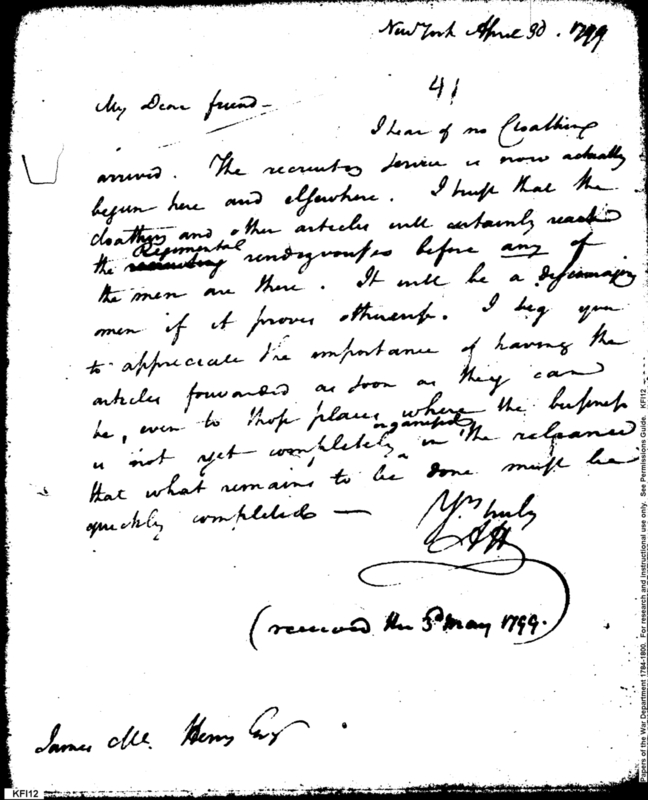 New York April 30. 1799
41
My Dear friend -
I hear of no Cloathing
arrived. The recruiting service is now actually
begun here and elsewhere. I trust that the
cloathing and other articles will certainly reach
the Regimental rendezvouses before any of
the men are there. It will be a discouraging
omen if it proves otherwise. I beg you
to appreciate the importance of having the
articles forwarded as soon as they can
be, even to those places where the business
is not yet completely organised in the reliance
that what remains to be done must be
quickly completed —
Yrs truly
AH
(received the 3d May 1799.
James Mc. Henry Esq
KFI12
Papers of the War Department 1784-1800. For research and instructional use only. See Permissions Guide. KFI12